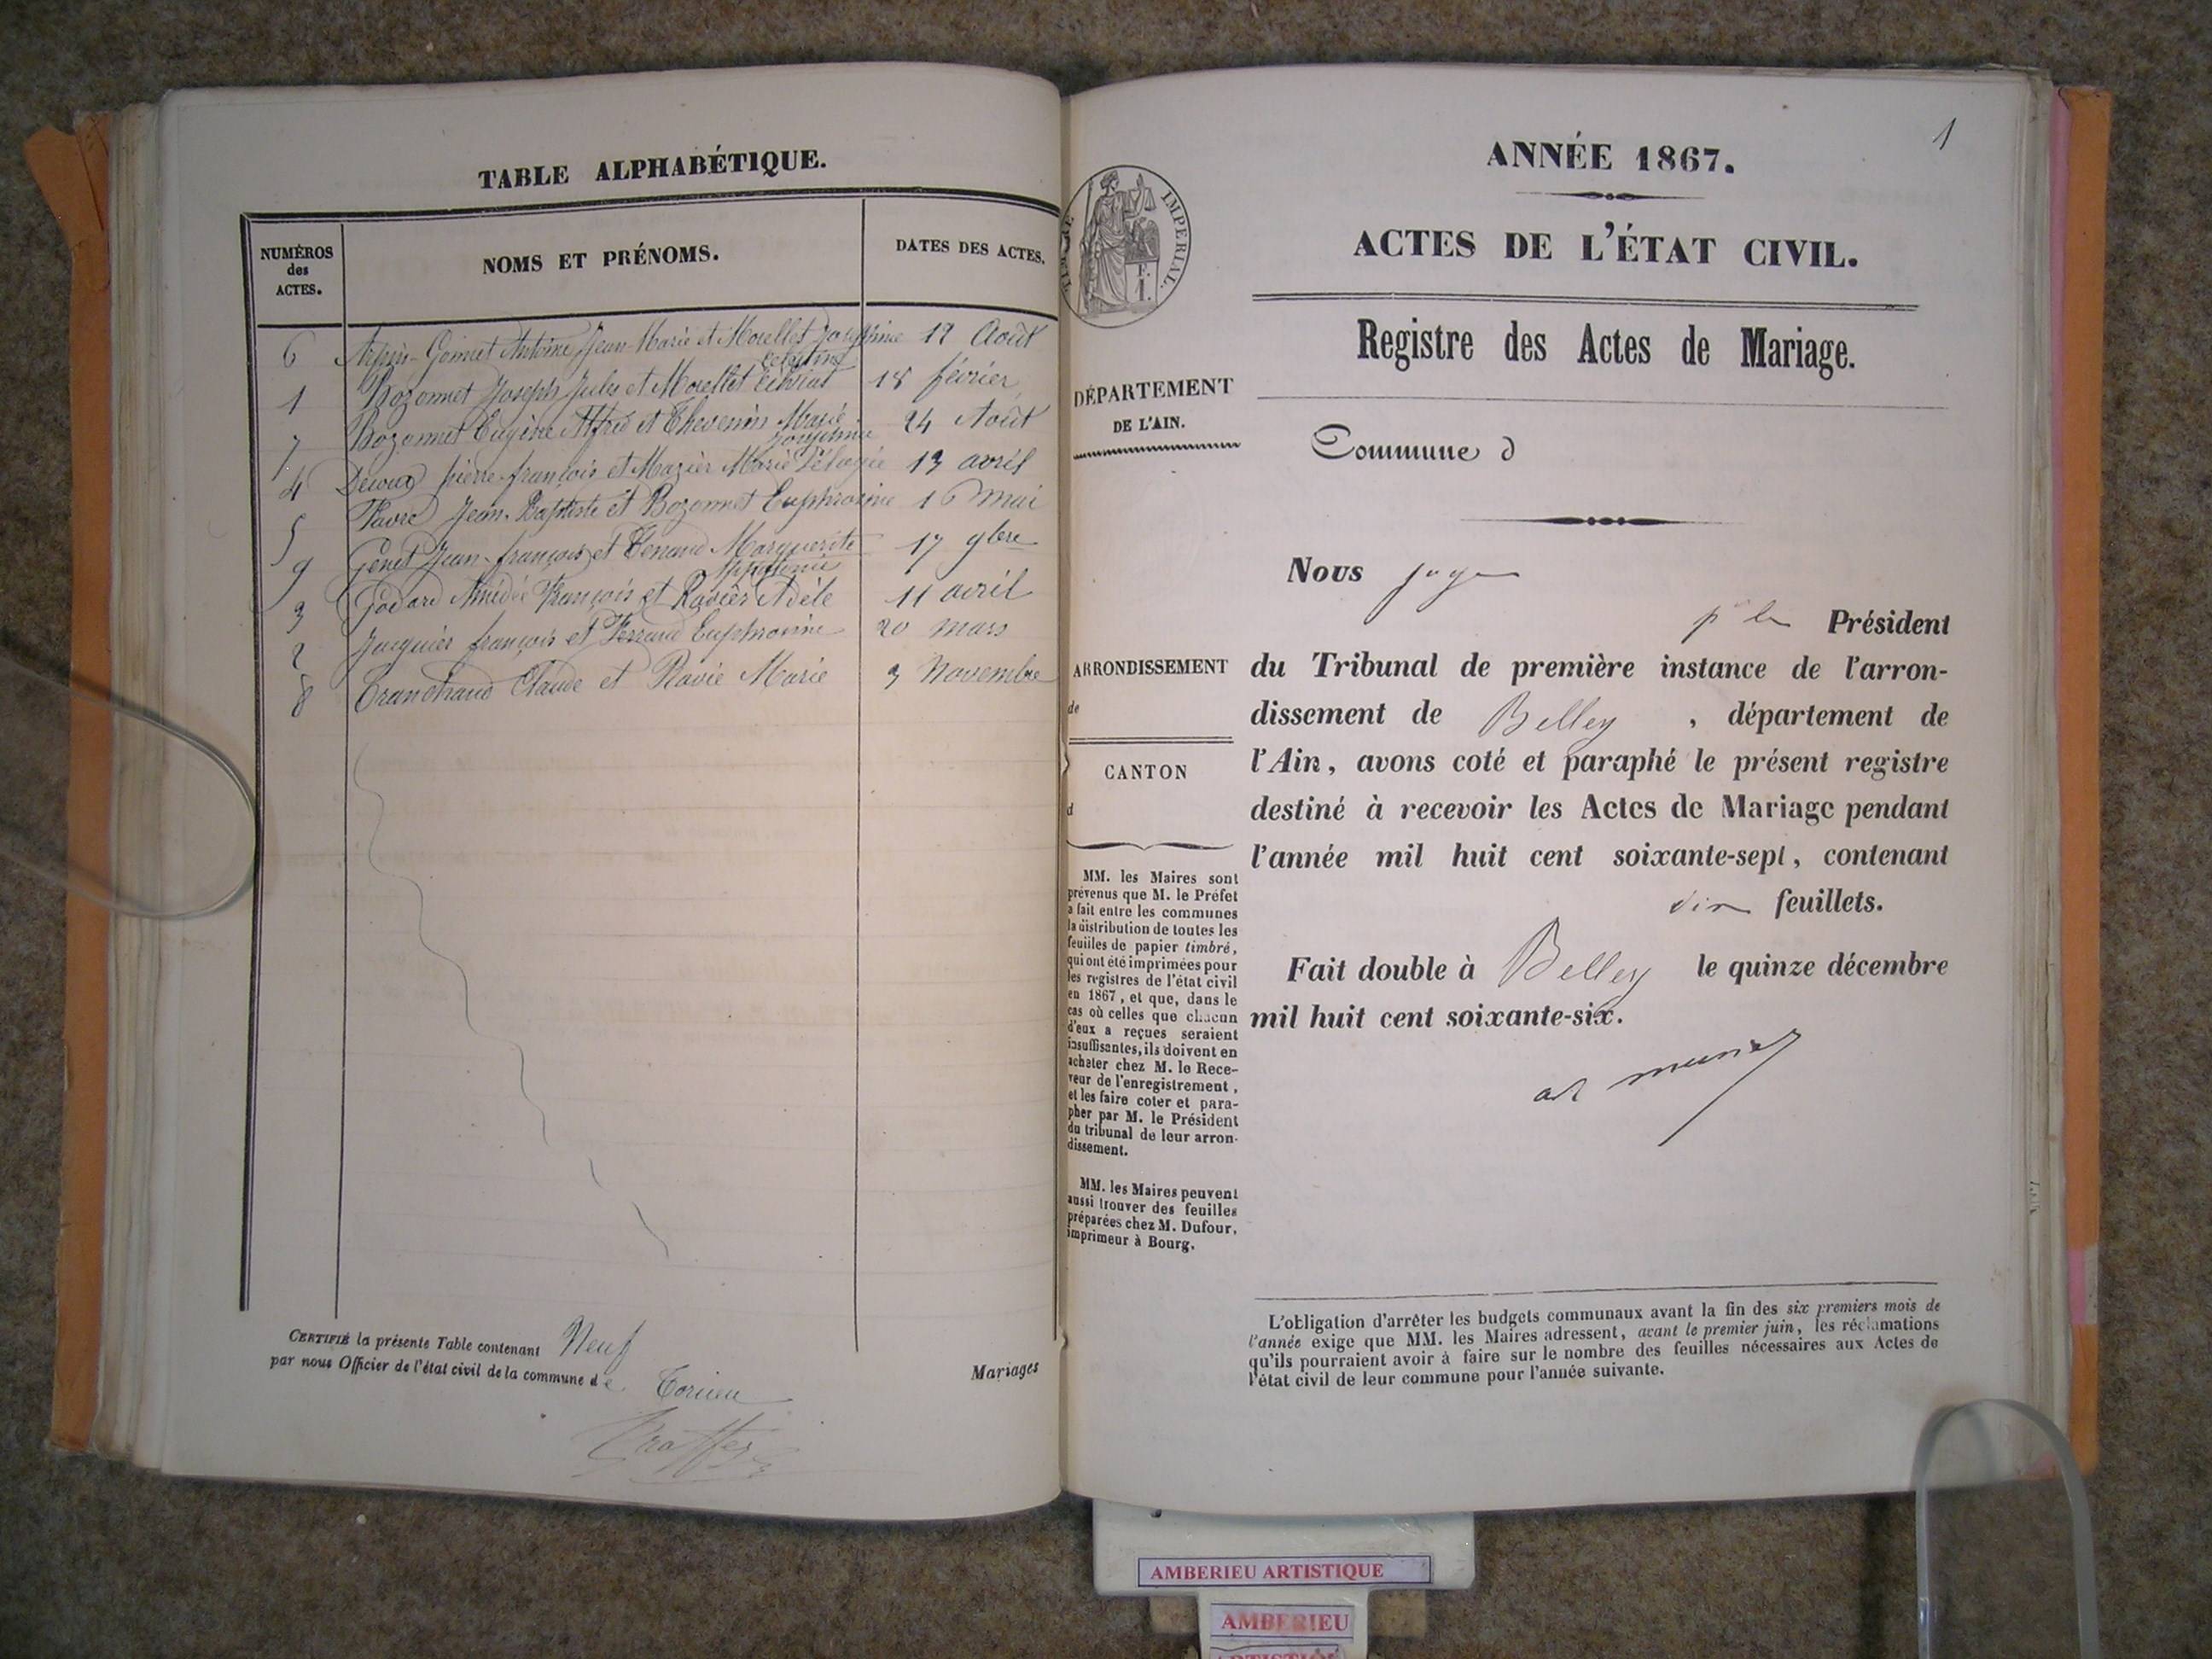 TABLE ALPHABÉTIQUE.
NUMÉROS des ACTES.
NOMS ET PRÉNOMS.
DATES DES ACTES.
6 Goinet Antoine Jean-Marie et Morellet Joséphine 12 Août
Célestine
1 Bozonnet Joseph Jules et Morellet 18 février
7 Bozonnet Eugène Alfred et Thevenin Marie 24 Août
Joséphine
4 pierre-françois et Mazier Marie Pélagie 13 avril
5 Favre Jean-Baptiste et Bozonnet Euphrosine 16 mai
9 Genet Jean-françois et Tenand Marguerite 17 9bre
Appolonie
3 Godard Amédée François et Ravier Adèle 11 avril
2 Jacquier françois et Ferrand Euphrosine 20 mars
8 Tranchand Claude et Ravie Marie 3 Novembre
CERTIFIÉ la présente Table contenant Neuf
Mariages
par nous Officier de l'état civil de la commune de Torcieu
1
ANNÉE 1867.
ACTES DE L'ÉTAT CIVIL.
Registre des Actes de Mariage.
TIMBRE IMPÉRIAL.
F.
1.
DÉPARTEMENT
DE L'AIN.
Commune d
Nous juge
pr le Président
ARRONDISSEMENT
de
du Tribunal de première instance de l'arron-
dissement de Belley, département de
l'Ain, avons coté et paraphé le présent registre
destiné à recevoir les Actes de Mariage pendant
l'année mil huit cent soixante-sept, contenant
dix feuillets.
Fait double à Belley le quinze décembre
mil huit cent soixante-six.
CANTON
d
MM. les Maires sont
prévenus que M. le Préfet
a fait entre les communes
la distribution de toutes les
feuilles de papier timbré,
qui ont été imprimées pour
les registres de l'état civil
en 1867, et que, dans le
cas où celles que chacun
d'eux a reçues seraient
insuffisantes, ils doivent en
acheter chez M. le Rece-
veur de l'enregistrement,
et les faire coter et para-
pher par M. le Président
du tribunal de leur arron-
dissement.
MM. les Maires peuvent
aussi trouver des feuilles
préparées chez M. Dufour,
imprimeur à Bourg.
L'obligation d'arrêter les budgets communaux avant la fin des six premiers mois de
l'année exige que MM. les Maires adressent, avant le premier juin, les réclamations
qu'ils pourraient avoir à faire sur le nombre des feuilles nécessaires aux Actes de
l'état civil de leur commune pour l'année suivante.
AMBERIEU ARTISTIQUE
AMBERIEU
ARTISTIQUE